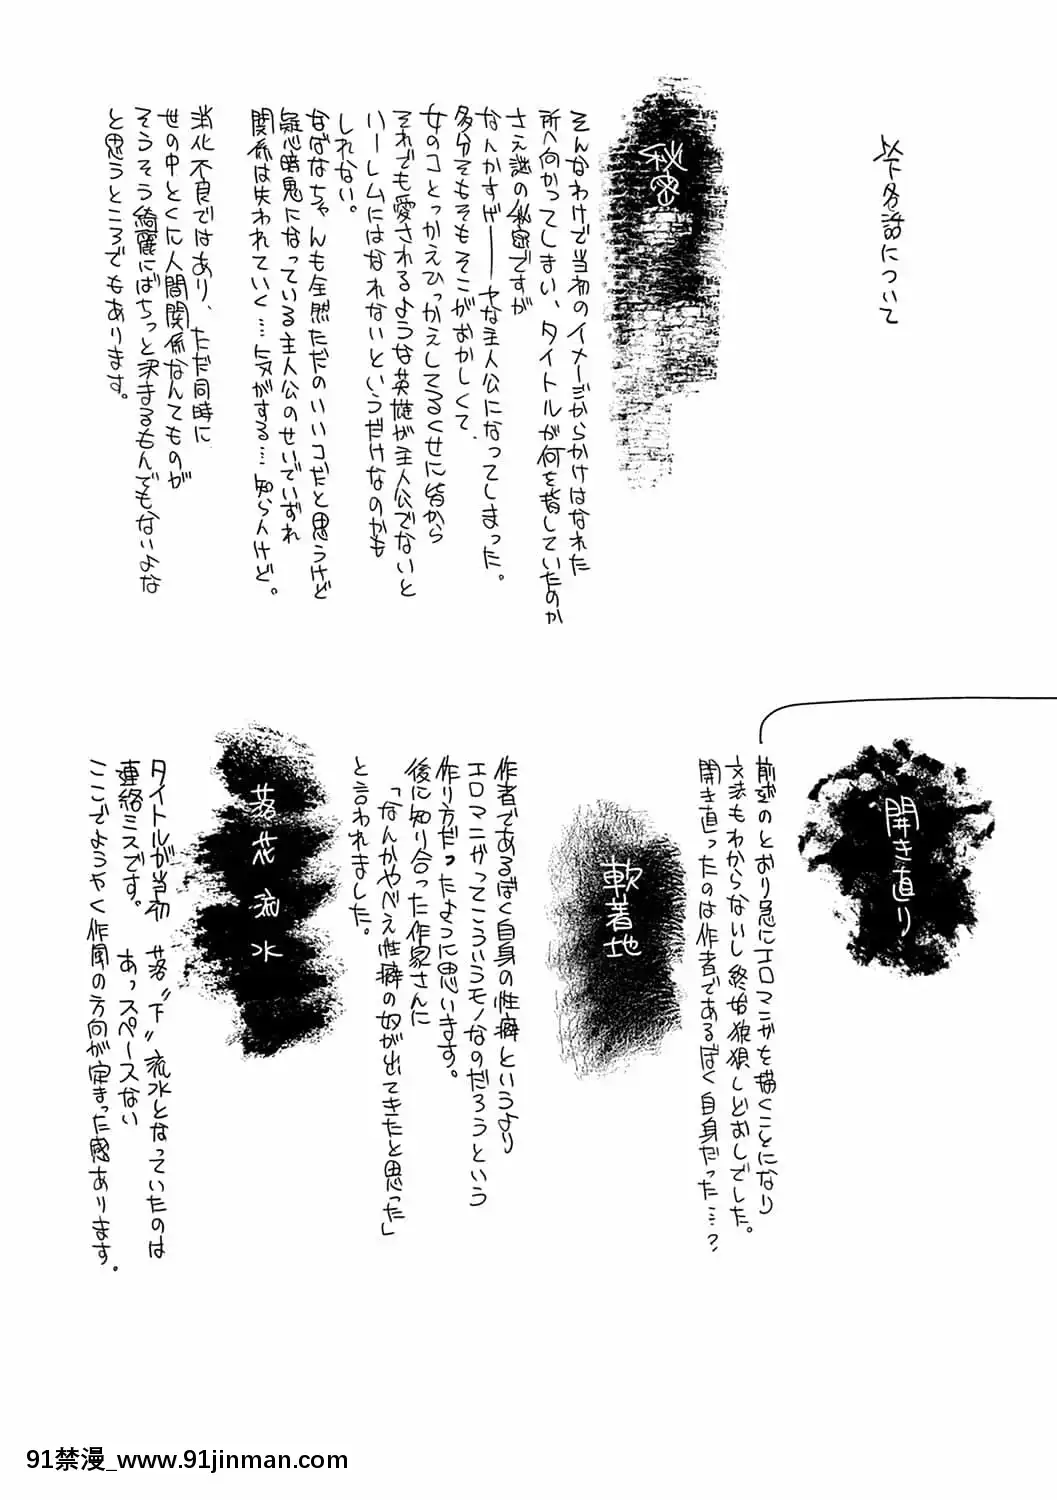 以下各話について
秘密
そんなわけで当初のイメージからかけはなれた
所へ向かってしまい、タイトルが何を指していたのか
さえ謎の秘密ですが
なんかすげーーヤな主人公になってしまった。
多分そもそもそこがおかしくて、
女のコとっかえひっかえしてるくせに皆から
それでも愛されるような英雄が主人公でないと
ハーレムにはなれないというだけなのかも
しれない。
なばなちゃんも全然ただのいいコだと思うけど
疑心暗鬼になっている主人公のせいでいずれ
関係は失われていく…気がする…知らんけど。
消化不良ではあり、ただ同時に
世の中とくに人間関係なんてものが
そうそう綺麗にばちっと決まるもんでもないよな
と思うところでもあります。
開き直り
前述のとおり急にエロマンガを描くことになり
文法もわからないし終始狼狽しどおしでした。
開き直ったのは作者であるぼく自身だった…?
軟着地
作者であるぼく自身の性癖というより
エロマンガってこういうモノなのだろうという
作り方だったように思います。
後に知り合った作家さんに
「なんかやべえ性癖の奴が出てきたと思った」
と言われました。
落花流水
タイトルが当初 落〝下〟流水となっていたのは
連絡ミスです。 あっスペースない
ここでようやく作風の方向が定まった感あります。
91禁漫_www.91jinman.com